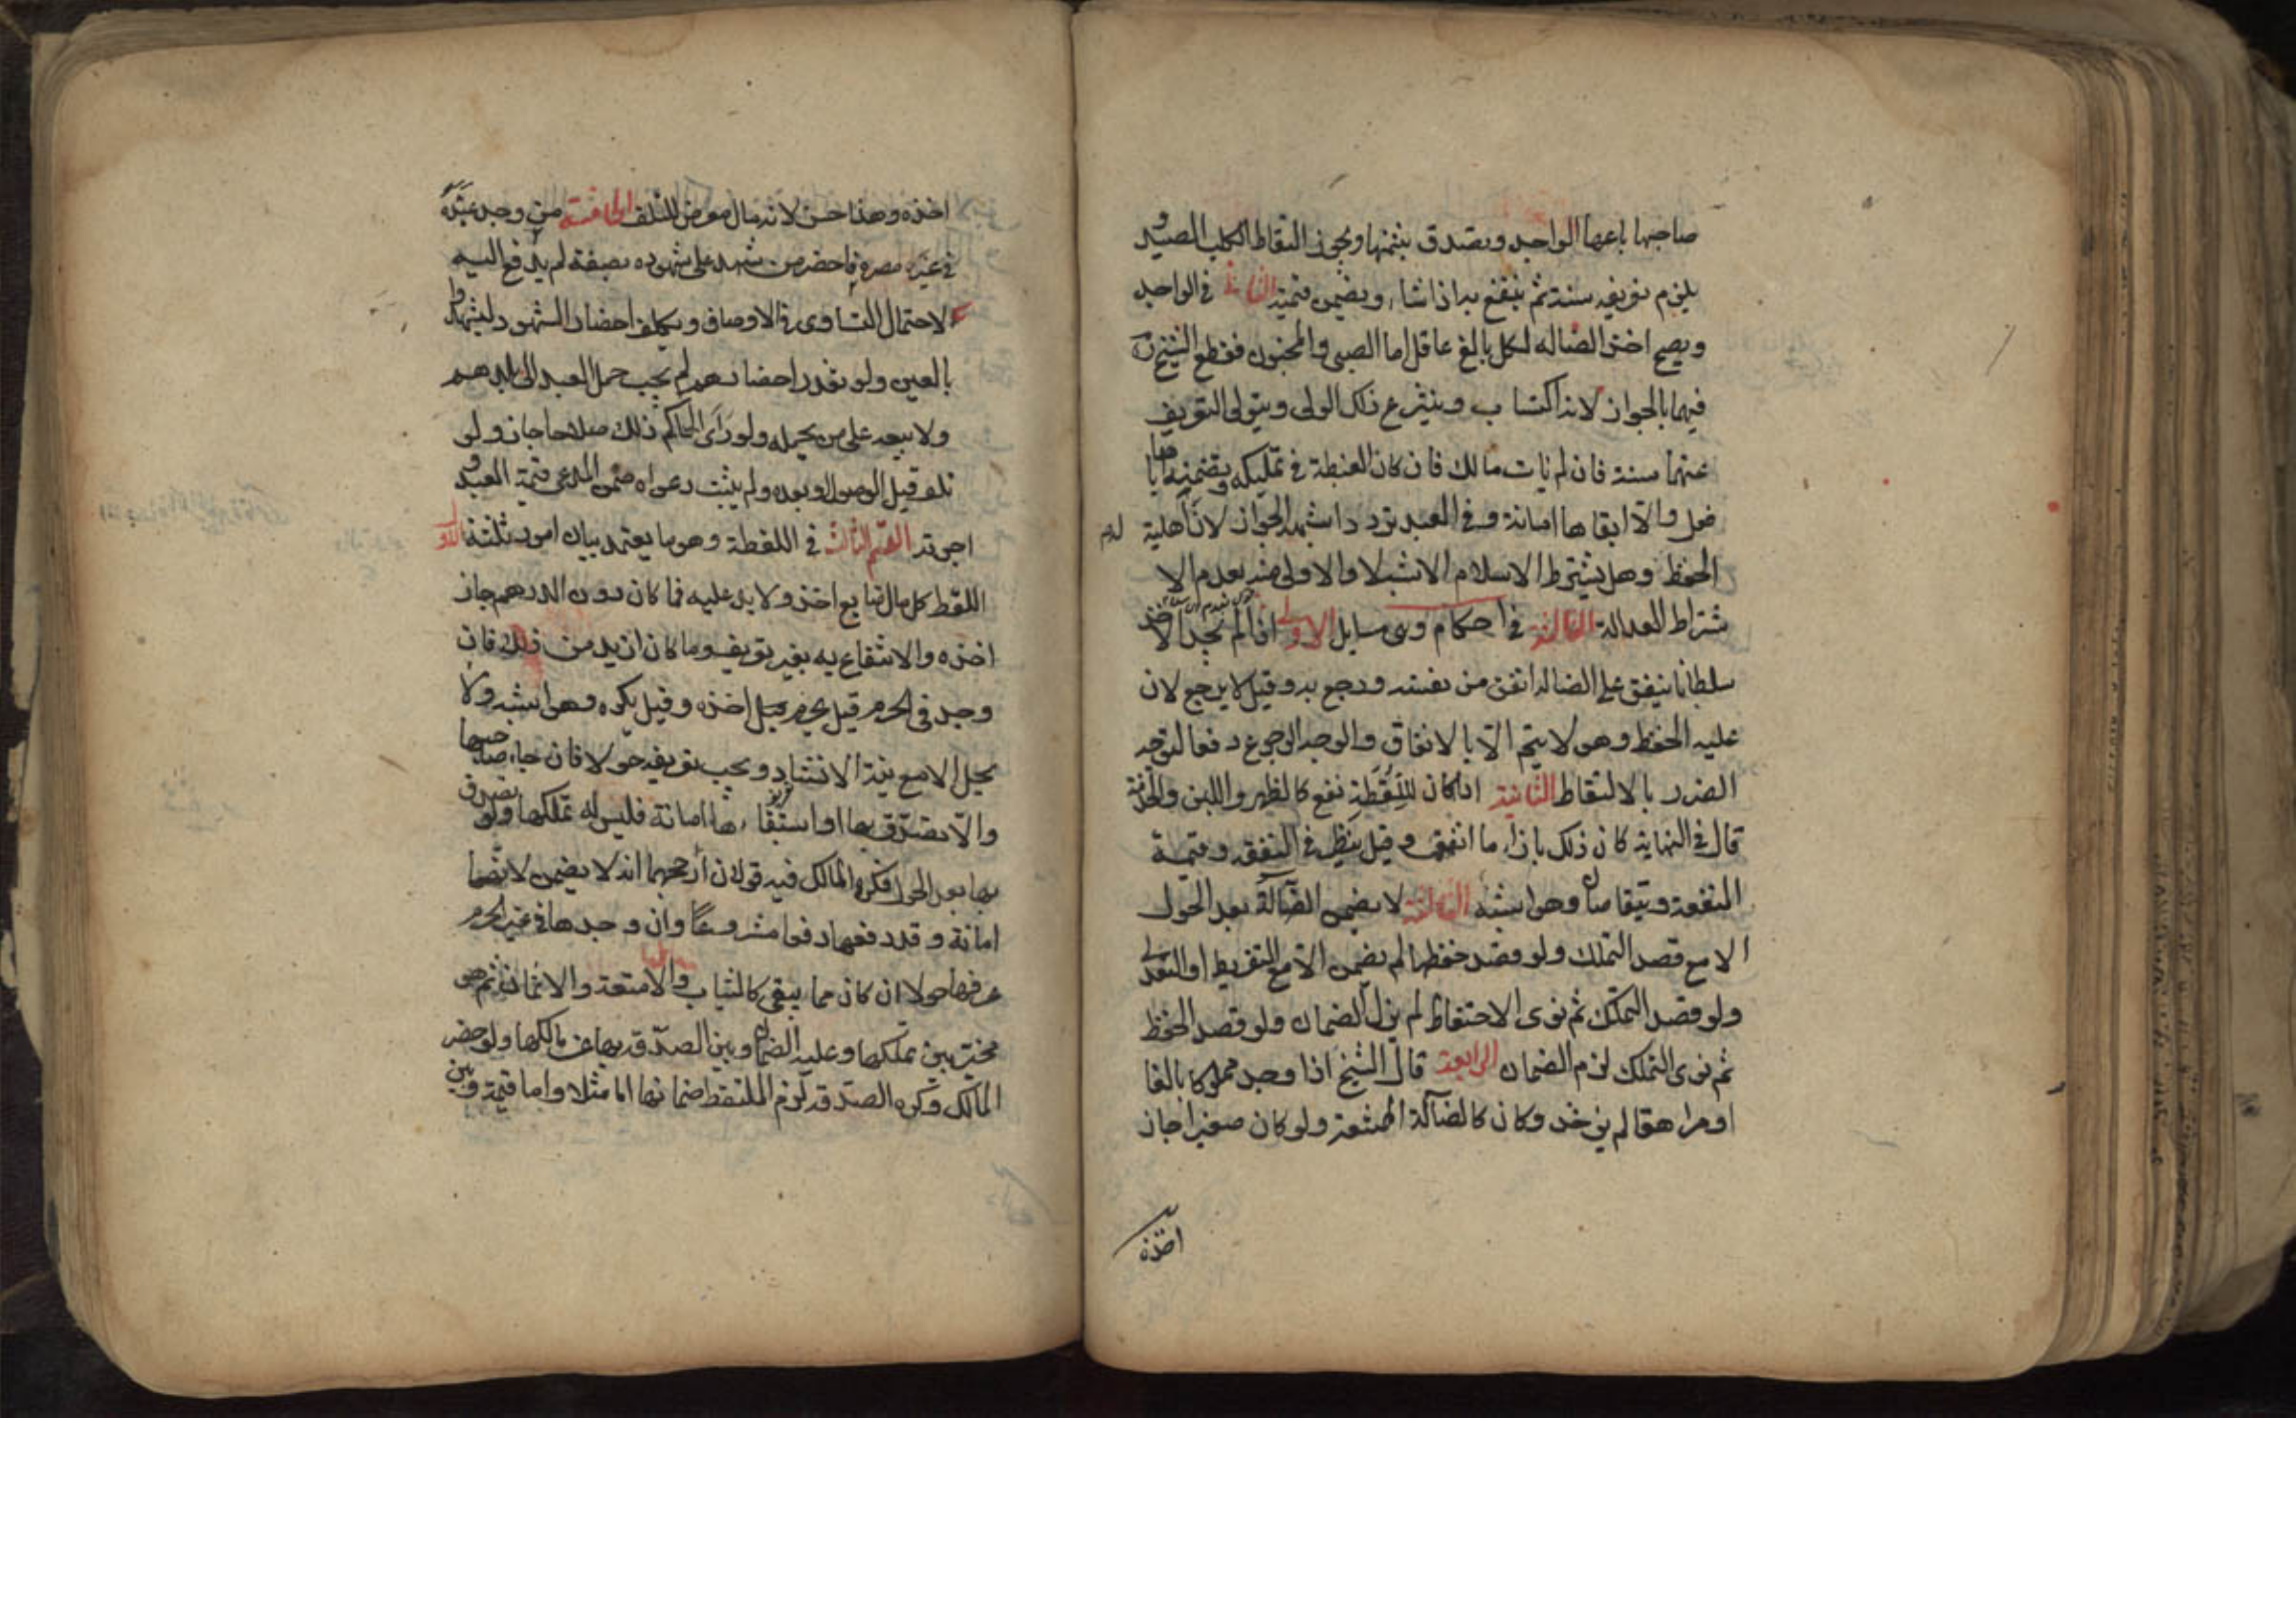 صاحبها باعها الواجد وتصدق بثمنها ويجوز التقاط الكلب الصيد و
يلزم تعريفه سنة ثم ينتفع به اذا شاء ويضمن قيمته الثانى فى الواجد
ويصح اخذ الضاله لكل بالغ عاقل اما الصبى والمجنون فقطع الشيخ ره
فيهما بالجواز لانه اكتساب وينتزع ذلك الولى ويتولى التعريف
عنهما سنة فان لم يات مالك فان كان الغبطة فى تمليكه وتضمينه اياها
فعل والا ابقاها امانة وفى العبد تردد اشبهه الجواز لان له اهلية
الحفظ وهل يشترط الاسلام الاشبه لا والاولى منه بعدم الا
شتراط العدالة الثالث فى احكام وهى مسايل الاولى اذا لم يجد الاخذ
سلطانا ينفق على الضاله انفق من نفسه ورجع به وقيل لا يرجع لان
عليه الحفظ وهو لا يتم الا بالانفاق والوجه الرجوع دفعا لتوجه
الضرر بالالتقاط الثانية اذا كان للقطة نفع كالظهر واللبن والخدمة
قال فى النهاية كان ذلك بازاء ما انفق وقيل ينظر فى النفقه وقيمة
المنفعة ويتقاصان وهو اشبه الثالثة لا يضمن الضالة بعد الحول
الا مع قصد التملك ولو قصد حفظها لم يضمن الا مع التفريط او التعدى
ولو قصد التملك ثم نوى الاحتفاظ لم يزل الضمان ولو قصد الحفظ
ثم نوى التملك لزم الضمان الرابعة قال الشيخ اذا وجد مملوكا بالغا
او مراهقا لم يؤخذ وكان كالضالة الممتنعة ولو كان صغيرا جاز
اخذه
اخذه وهذا حسن لانه مال معرض للتلف الخامسة من وجد عبده
فى غير مصره فاحضر من شهد على شهوده بصفة لم يدفع اليه
لاحتمال التساوى فى الاوصاف ويكلف احضار الشهود ليشهدوا
بالعين ولو تعذر احضارهم لم يجب حمل العبد الى بلدهم
ولا بيعه على من يحمله ولو راى الحاكم ذلك صلاحا جاز ولو
تلف قبل الوصول او بعده ولم يثبت دعواه ضمن المدعى قيمة العبد و
اجرته القسم الثالث فى اللقطة وهو ما يعتمد بيان امور ثلثة الاول
اللقط كل مال ضايع اخذ ولا يد عليه فما كان دون الدرهم جاز
اخذه والانتفاع به بغير تعريف وما كان ازيد من ذلك فان
وجد فى الحرم قيل يحرم اخذه وقيل يكره وهو اشبه ولا
يحل الا مع نية الانشاد ويجب تعريفه حولا فان جاء صاحبها
والا تصدق بها او استبقاءها امانة فليس له تملكها ولو تصدق
بها بعد الحول فكره المالك فيه قولان ارجحهما انه لا يضمن لانها
امانة وقد دفعها دفعا مشروعا وان وجدها فى غير الحرم
عرفها حولا ان كان مما يبقى كالثياب والامتعة والاثمان ثم هو
مخير بين تملكها وعليه الضمان وبين الصدقة بها عن مالكها ولو حضر
المالك وكره الصدقة لزم الملتقط ضمانها اما مثلا واما قيمة وبين